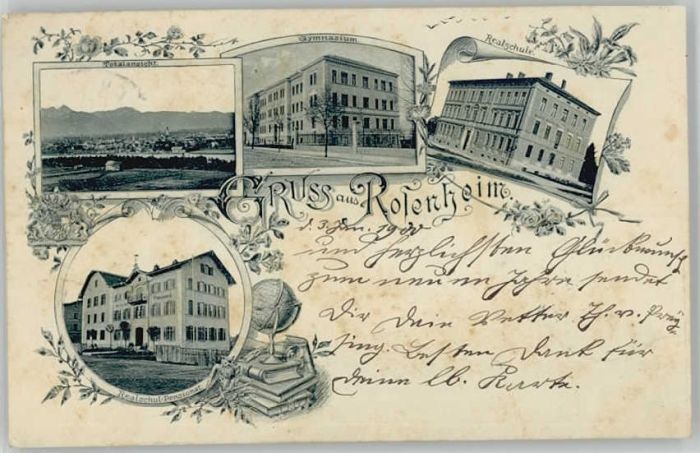 Totalansicht.
Gymnasium.
Realschule.
GRUSS aus Rosenheim
d. 3 Jan. 1900
und herzlichsten Glückwunsch
zum neuen Jahre sendet
Dir Dein Vetter Th. v. Prey
sing. Besten Dank für
deine lb. Karte.
Realschul-Pensionat